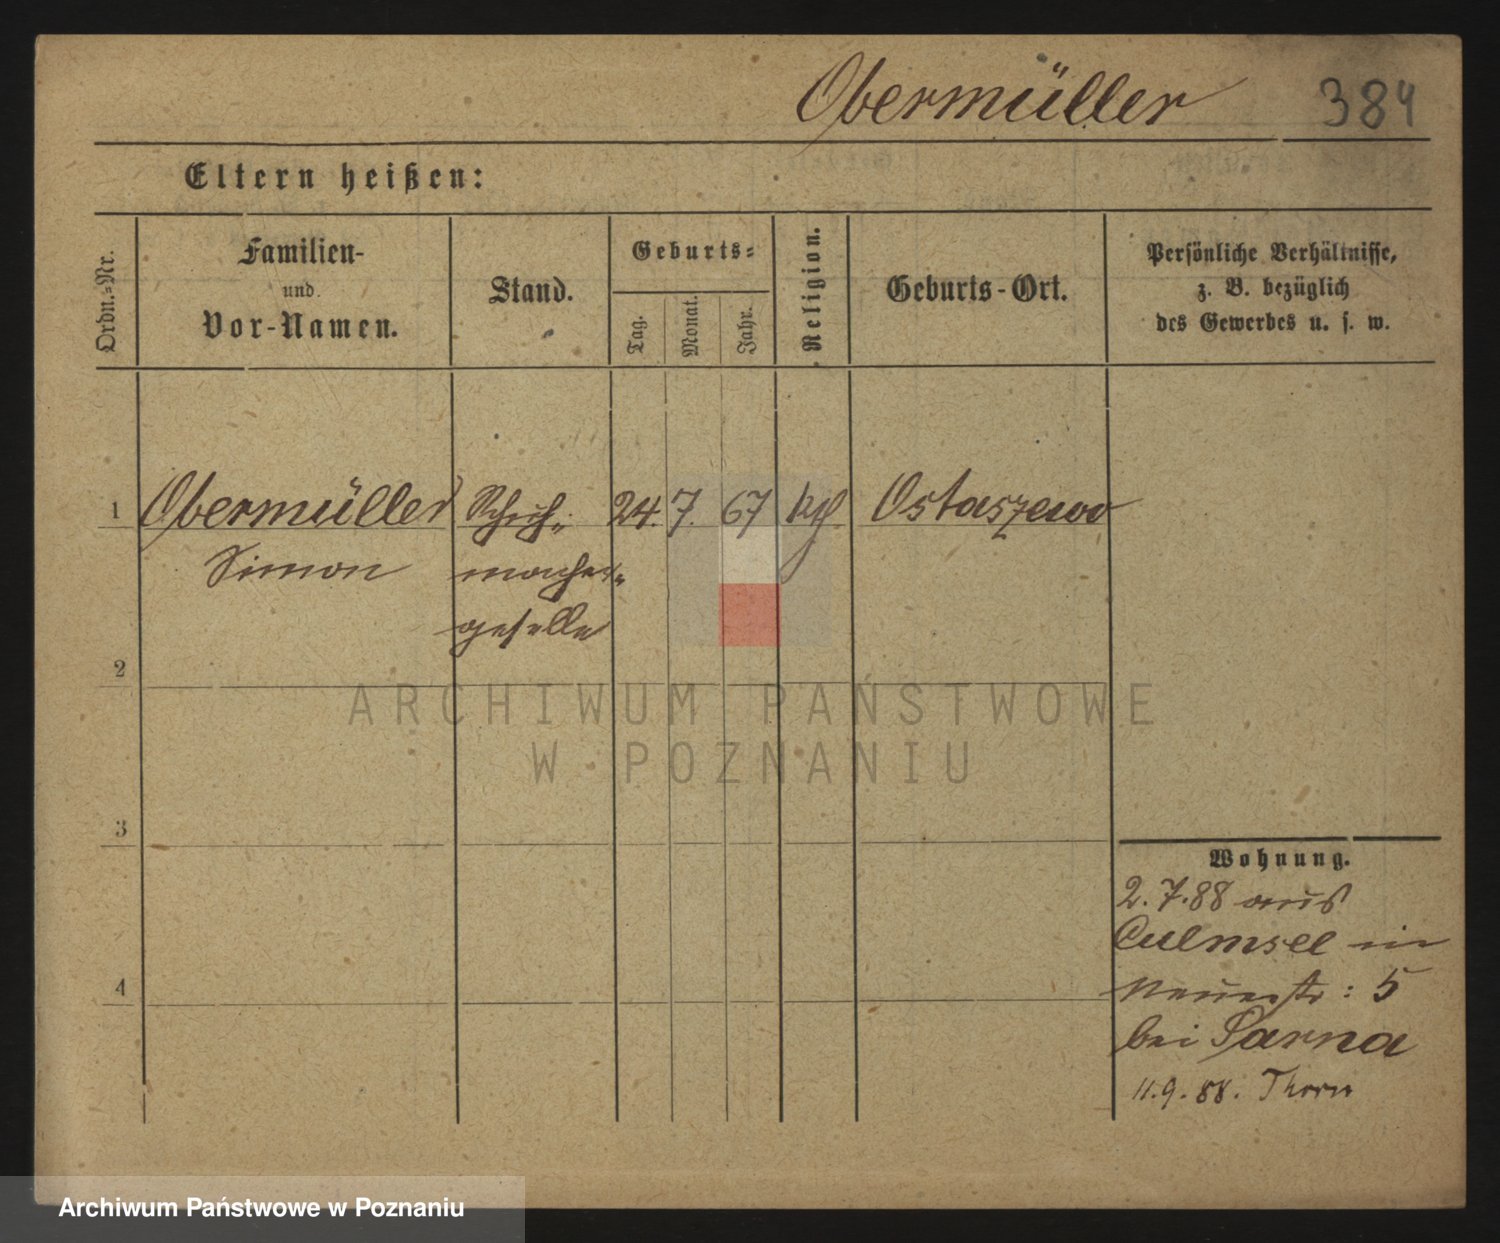 Obermüller 384
Eltern heißen:
Ordn.-Nr.
Familien-
und
Vor-Namen.
Stand.
Geburts-
Tag.
Monat.
Jahr.
Religion.
Geburts-Ort.
Persönliche Verhältnisse,
z. B. bezüglich
des Gewerbes u. s. w.
1 Obermüller Schuh- 24. 7. 67 kg. Ostaszewo
Simon macher-
geselle
2
3
4
Wohnung.
2.7.88 aus
Culmsee in
Neuestr: 5
bei Sarna
11.9.88. Thorn
ARCHIWUM PAŃSTWOWE
W POZNANIU
Archiwum Państwowe w Poznaniu